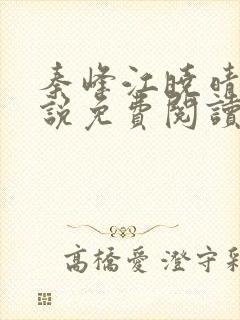 秦峰江曉晴
說免費閱讀
高橋愛 澄守彩